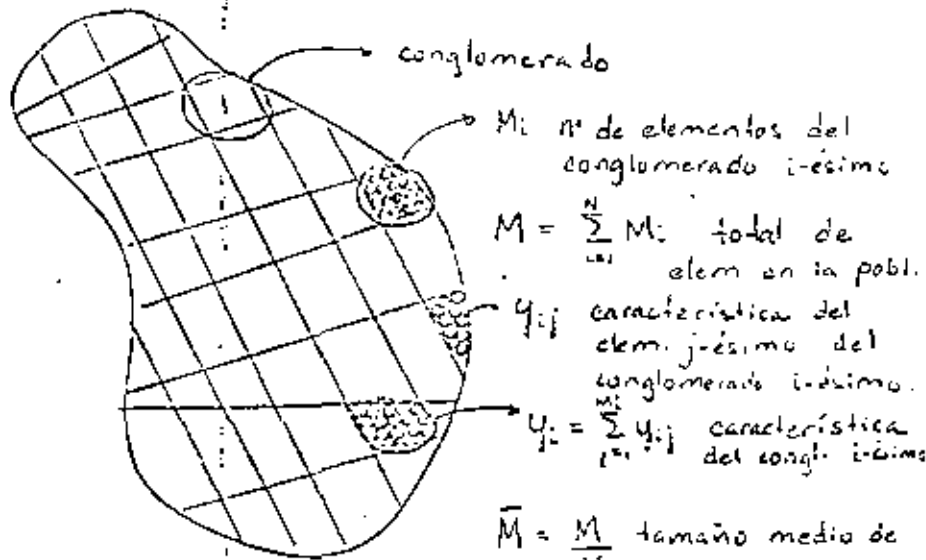 conglomerado
Mi nº de elementos del
conglomerado i-ésimo
M = \sum_{i=1}^{N} Mi total de
elem en la pobl.
yij característica del
elem. j-ésimo del
conglomerado i-ésimo.
yi = \sum_{j=1}^{Mi} yij característica
del congl. i-ésimo
M̄ = M/N tamaño medio de